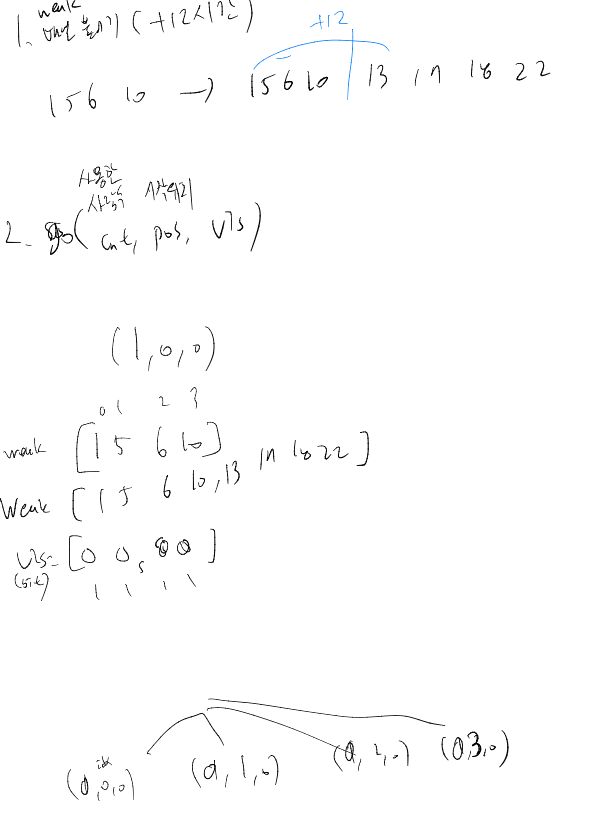 weak
1. 배열 늘리기 (+12시간)
+12
1 5 6 10 → 1 5 6 10 13 17 18 22
사용한 시작위치
2. go(cnt, pos, vis)
(1, 0, 0)
0 1 2 3
weak [1 5 6 10]
Weak [1 5 6 10, 13 17 18 22]
vis= [0 0, 0 0]
(bit) 1 1 1 1
idx
(0, 0, 0) (0, 1, 0) (0, 2, 0) (0 3, 0)